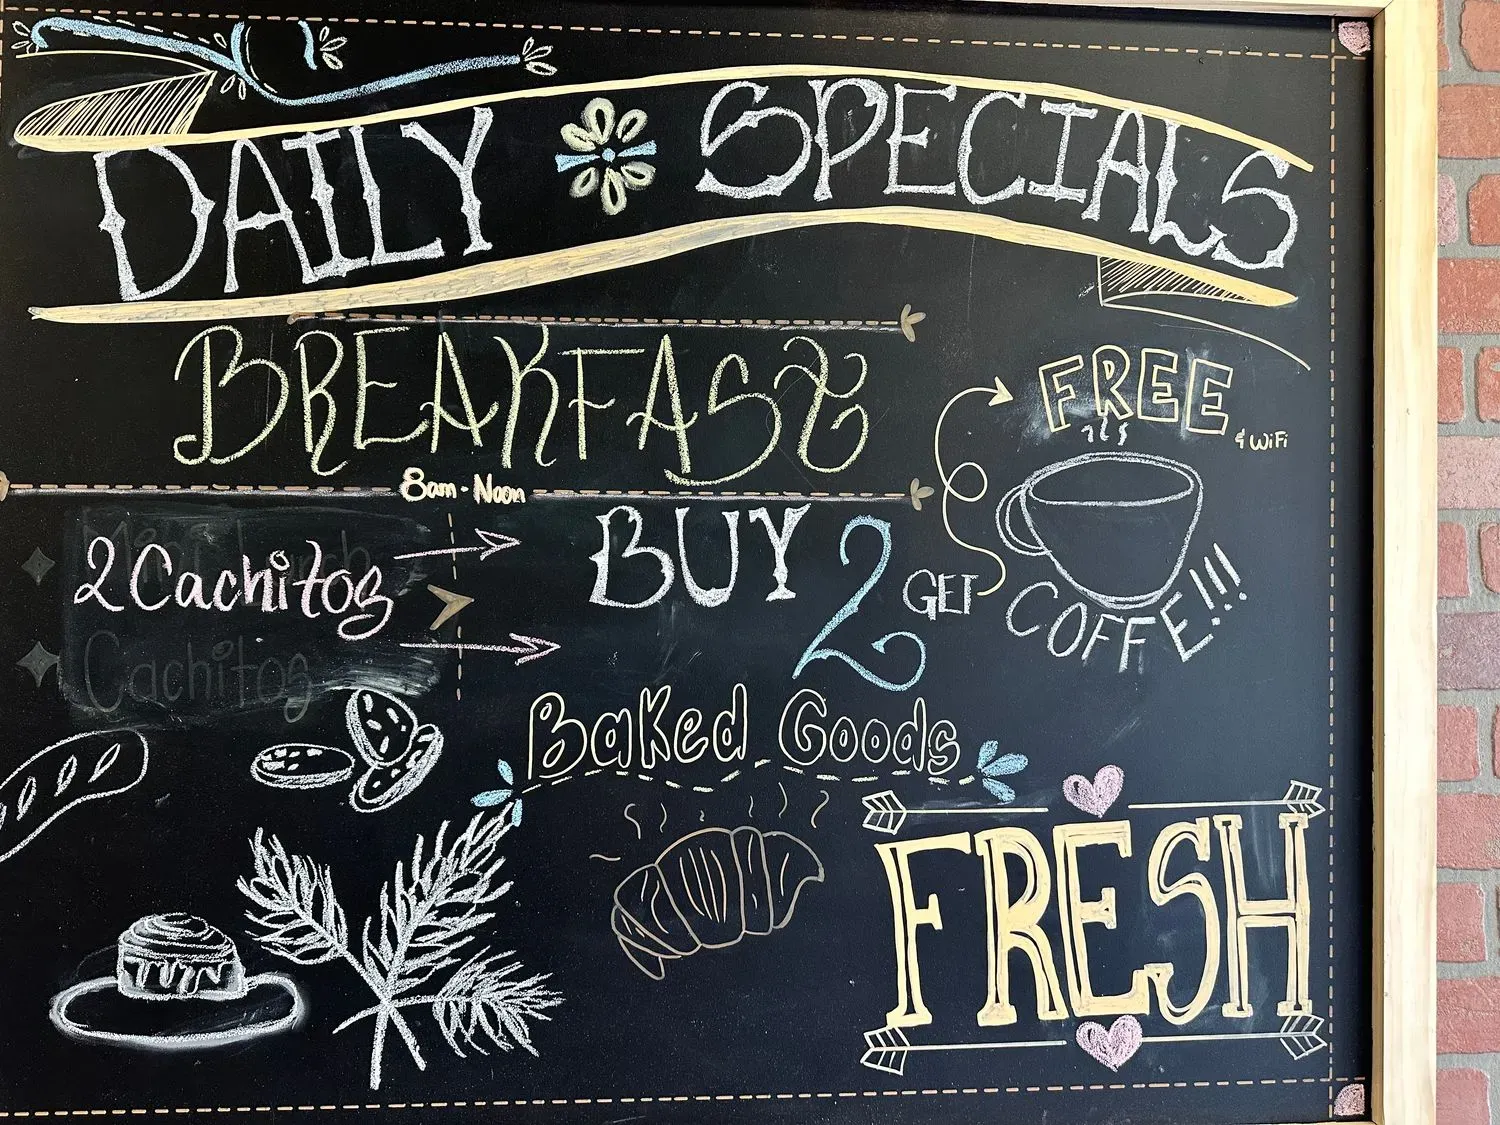 DAILY SPECIALS
BREAKFAST
8am - Noon
2 Cachitos
Mini Lunch
Cachitos
BUY 2
GET
FREE
& WiFi
COFFE!!!
Baked Goods
FRESH